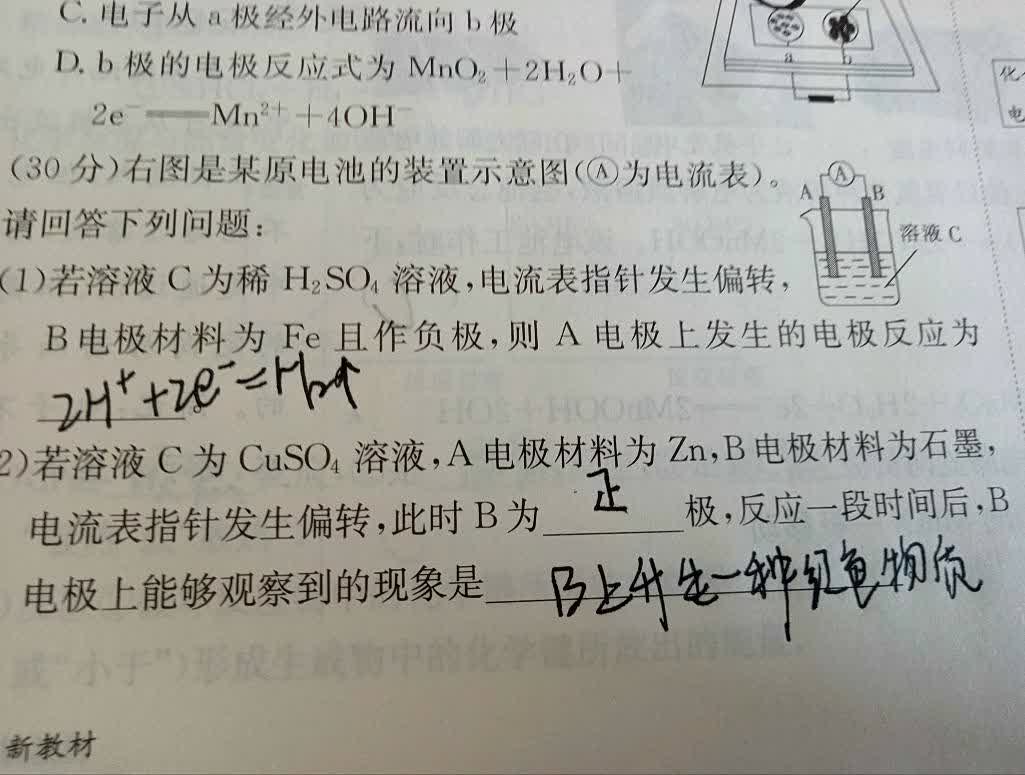 C. 电子从 a 极经外电路流向 b 极
D. b 极的电极反应式为 MnO₂+2H₂O+
2e⁻══Mn²⁺+4OH⁻
a b
化
电
(30 分)右图是某原电池的装置示意图(Ⓐ为电流表)。
A Ⓐ B
请回答下列问题:
溶液 C
(1)若溶液 C 为稀 H₂SO₄ 溶液,电流表指针发生偏转,
B 电极材料为 Fe 且作负极,则 A 电极上发生的电极反应为
2H⁺+2e⁻=H₂↑
。
2)若溶液 C 为 CuSO₄ 溶液,A 电极材料为 Zn,B 电极材料为石墨,
电流表指针发生偏转,此时 B 为 正 极,反应一段时间后,B
电极上能够观察到的现象是 B上升生一种红色物质
新教材